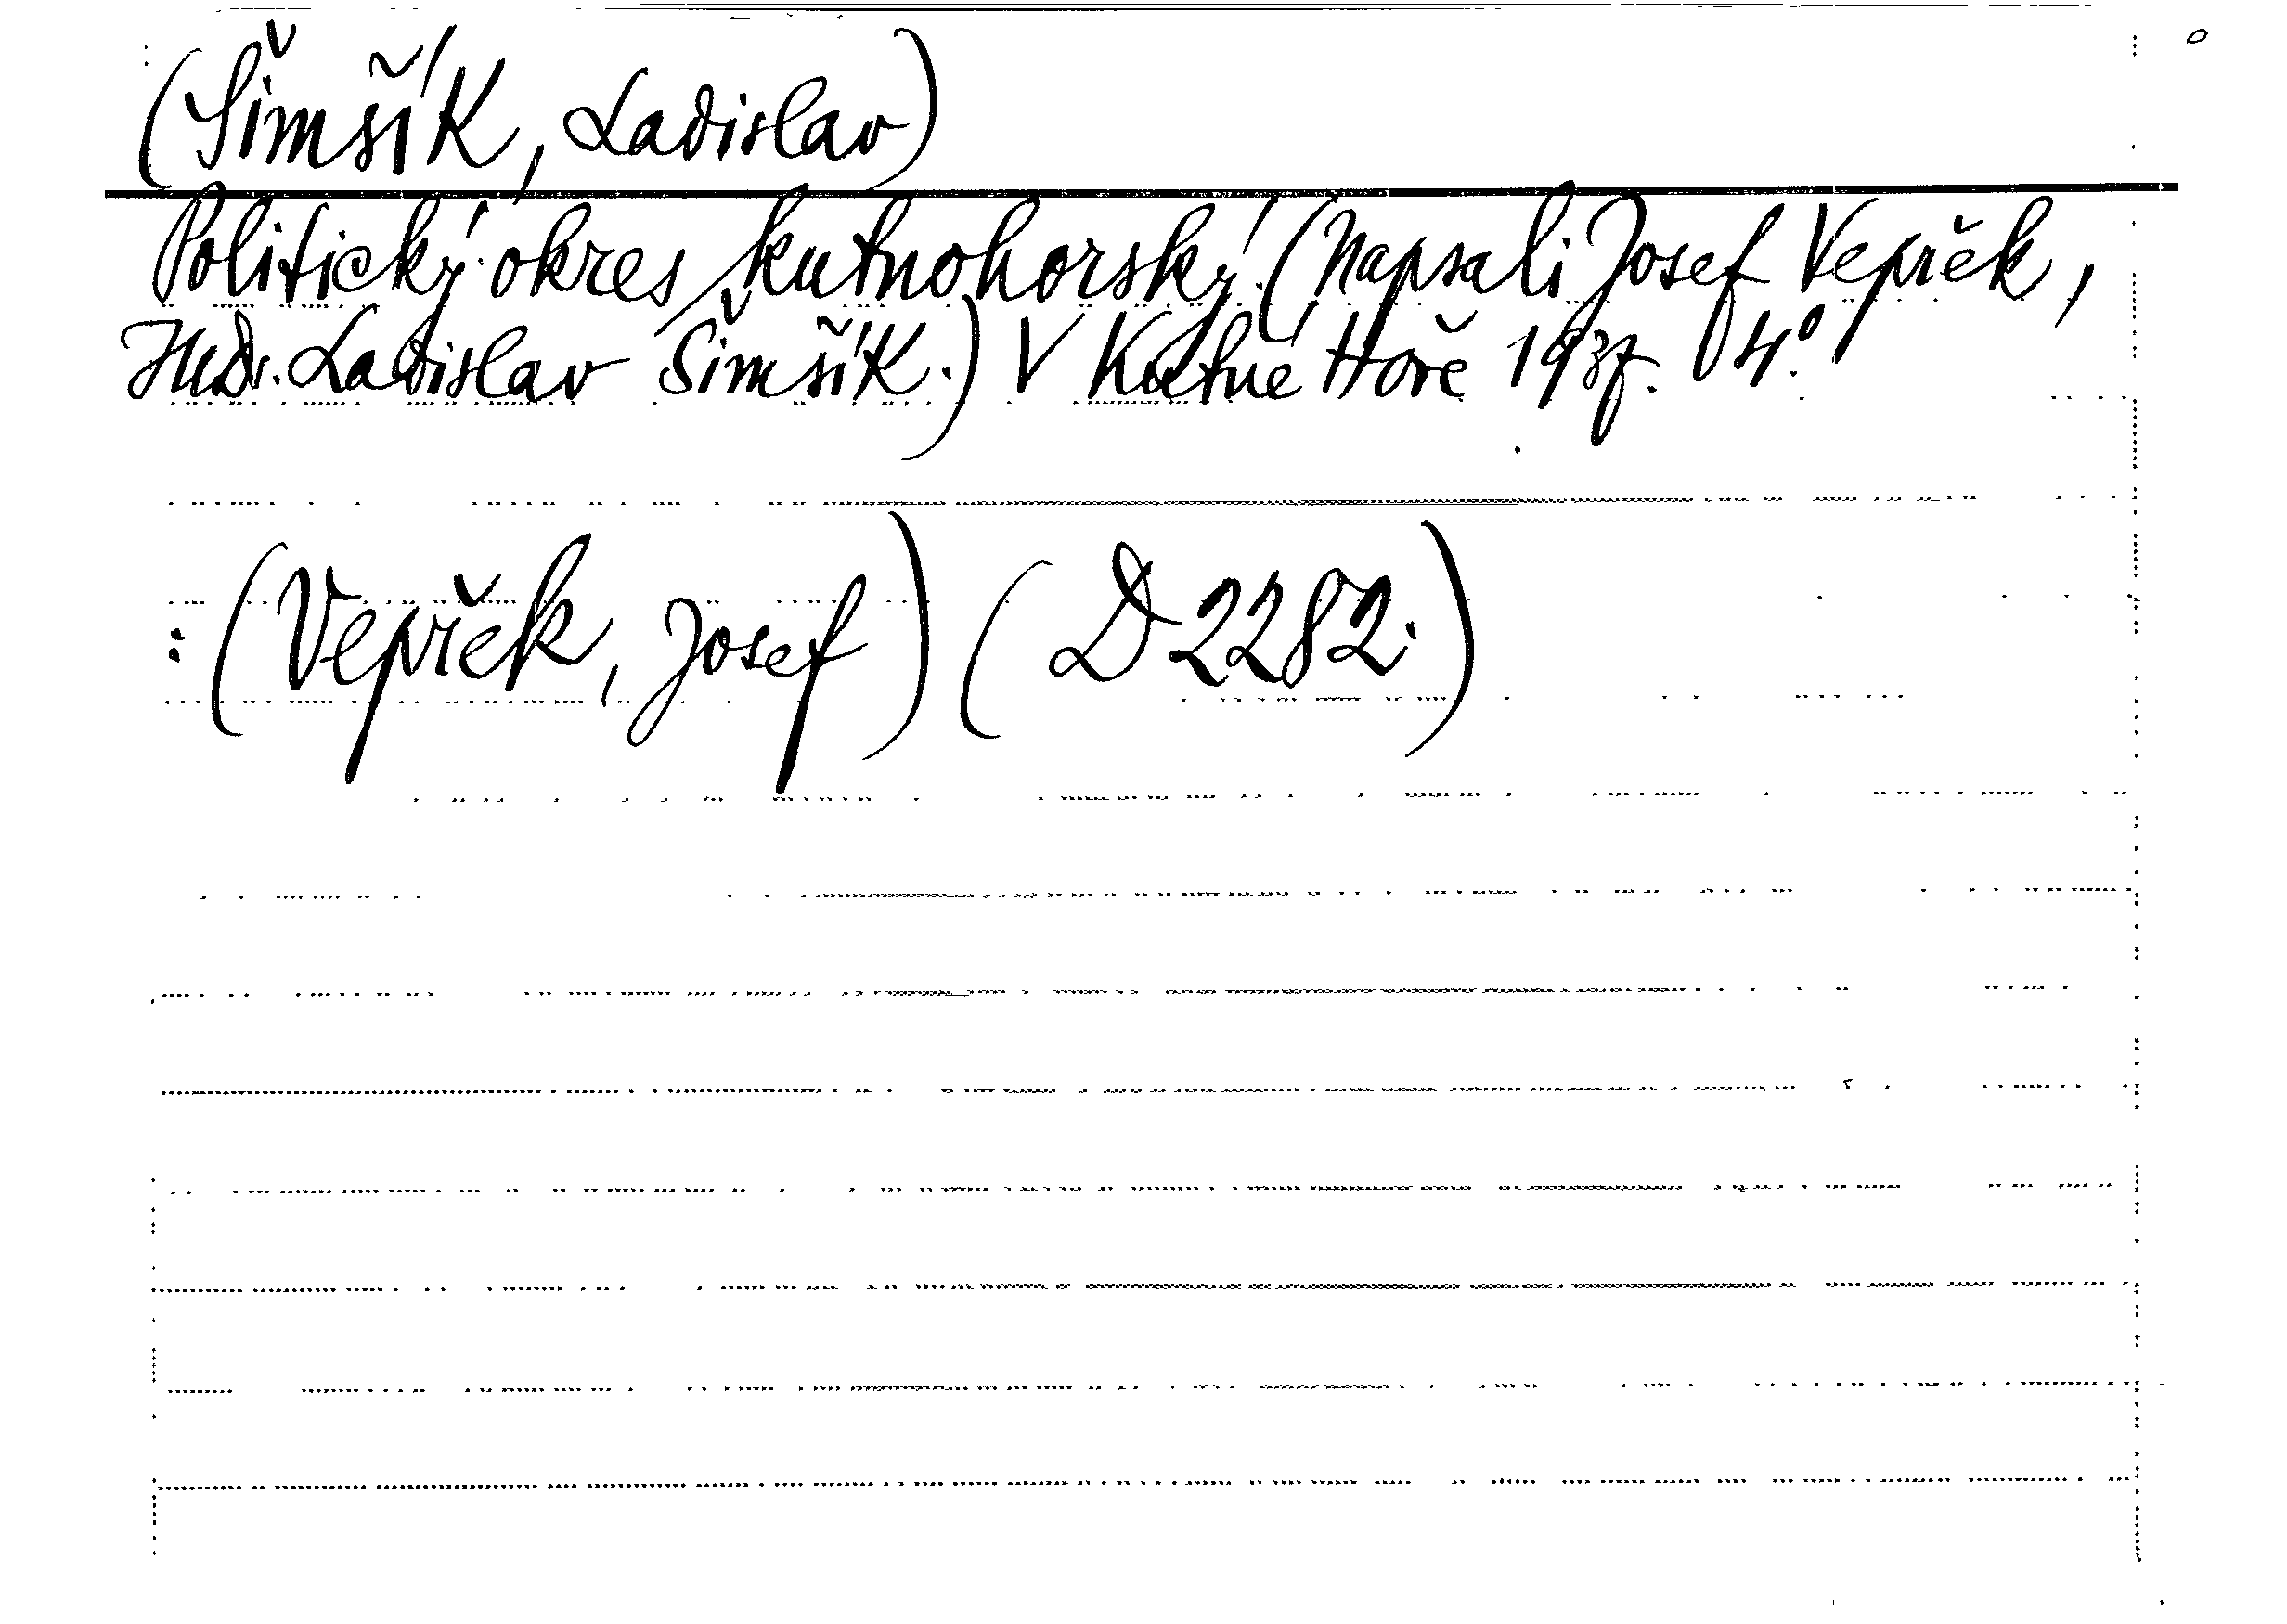 (Šimšík, Ladislav)
Politický okres kutnohorský. (Napsali Josef Vepřek,
JUDr. Ladislav Šimšík.) V Kutné Hoře 1937. 4°.
: (Vepřek, Josef) (D 2282.)